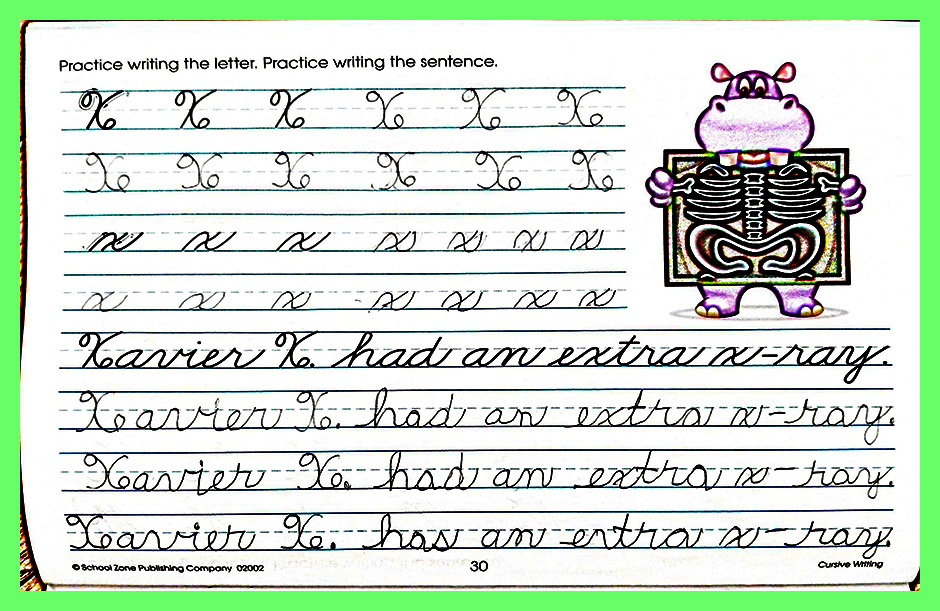 Practice writing the letter. Practice writing the sentence.
X X X X X X
X X X X X X
x x x x x x x
x x x x x x x
Xavier X. had an extra x-ray.
Xavier X. had an extra x-ray.
Xavier X. had an extra x-ray.
Xavier X. has an extra x-ray.
© School Zone Publishing Company 02002 30 Cursive Writing